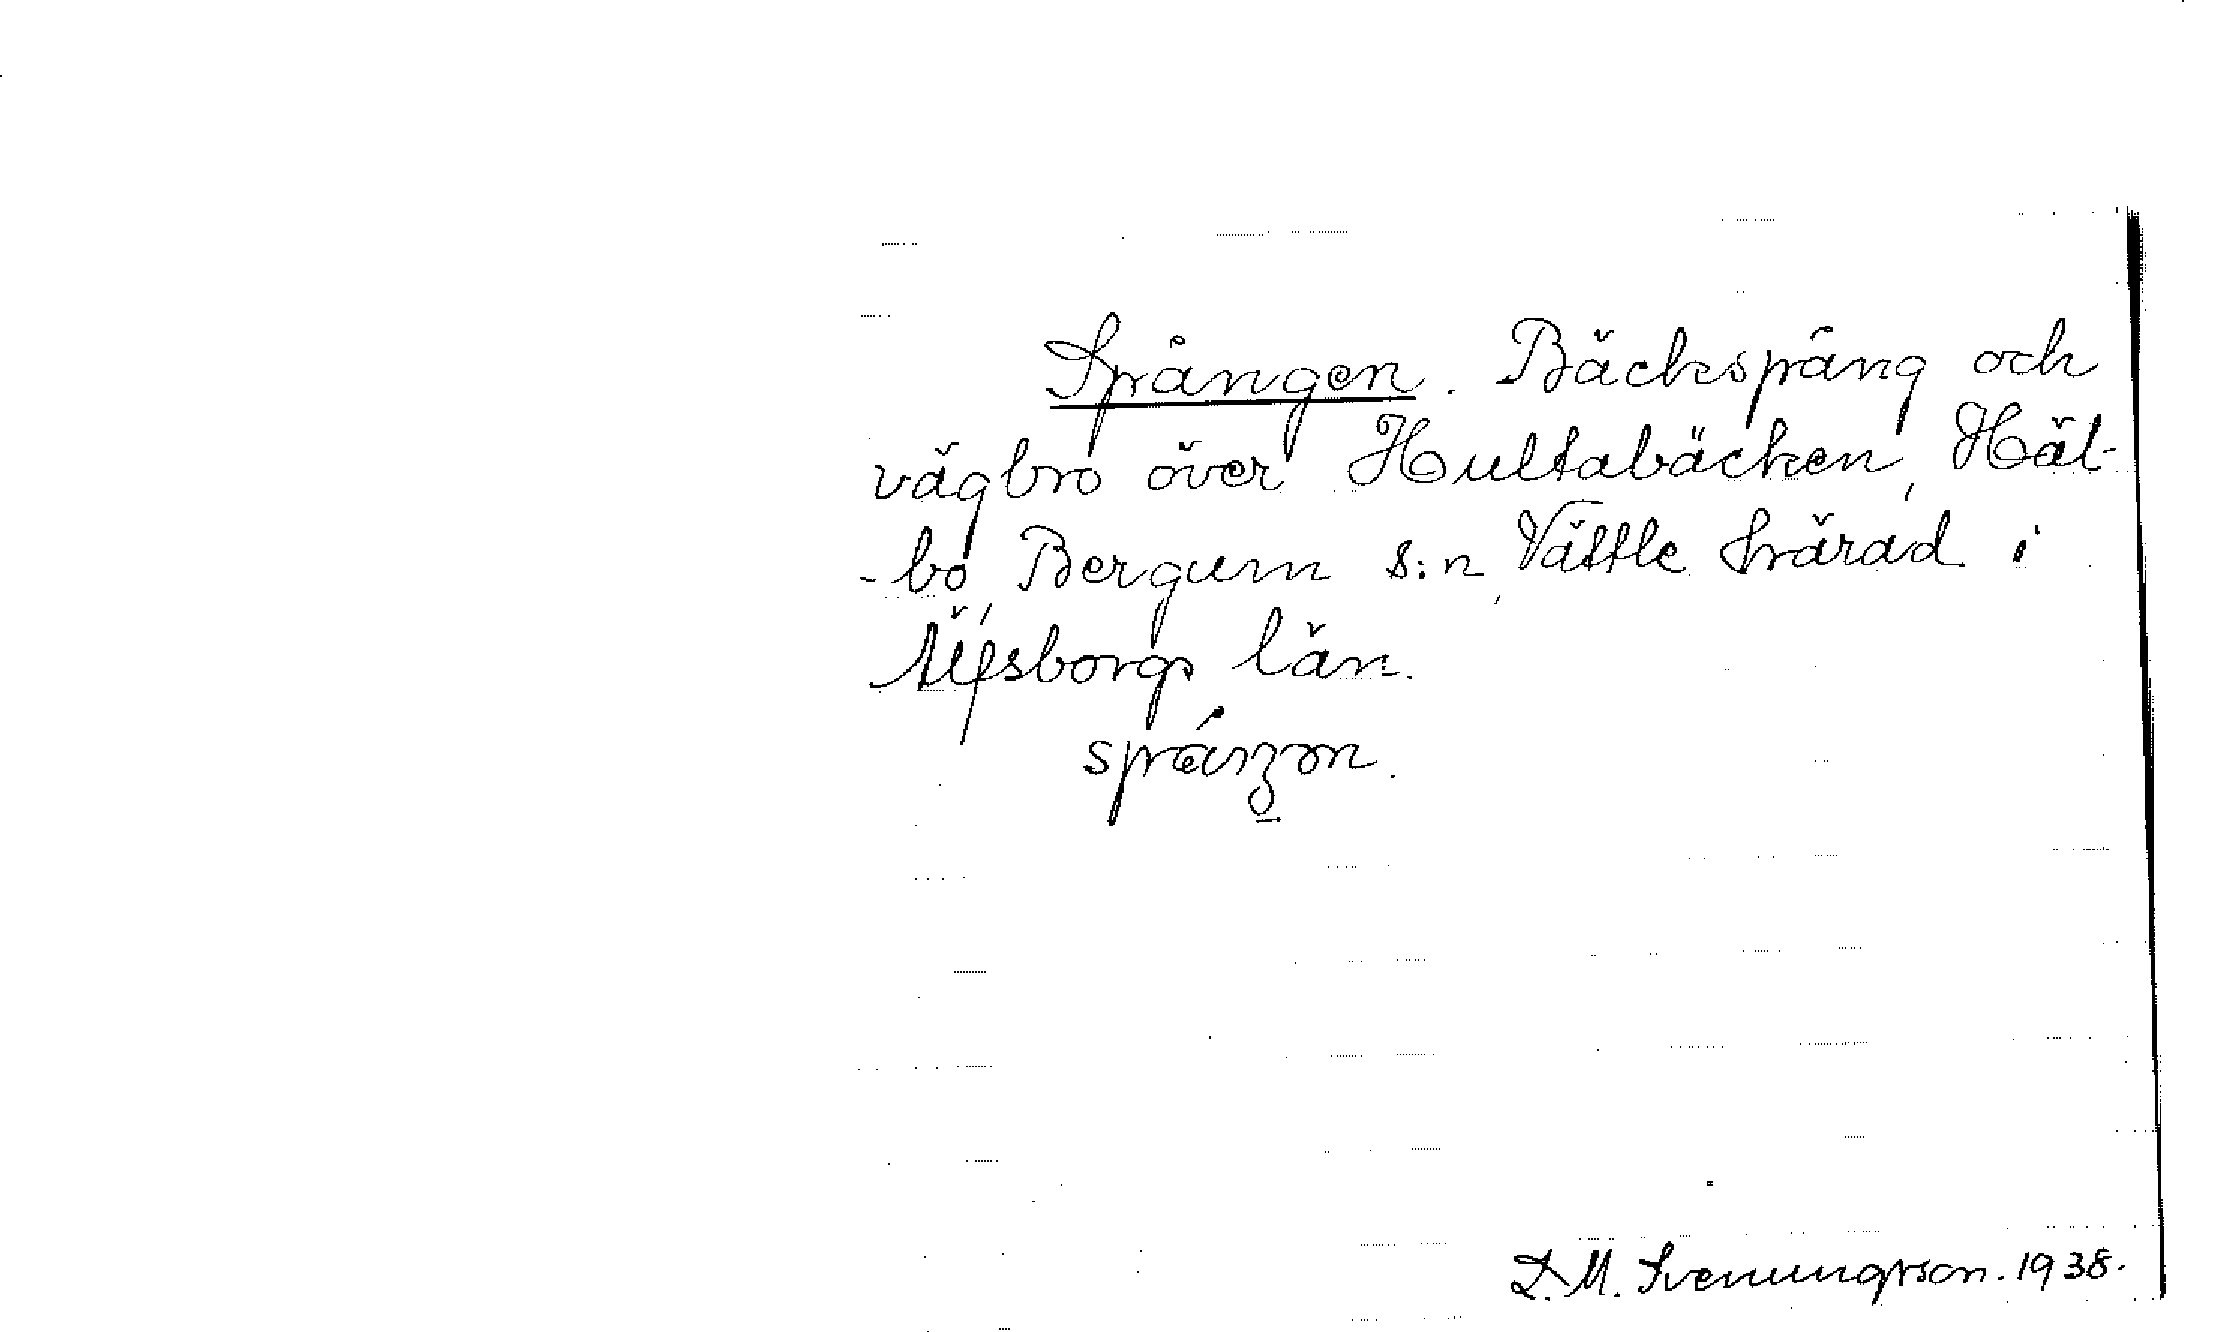 Spången. Bäckspång och
vägbro över Hultabäcken, Häl-
-bo Bergum s:n, Vättle härad i
Älfsborgs län.
D. M. Svenungsson. 1938.